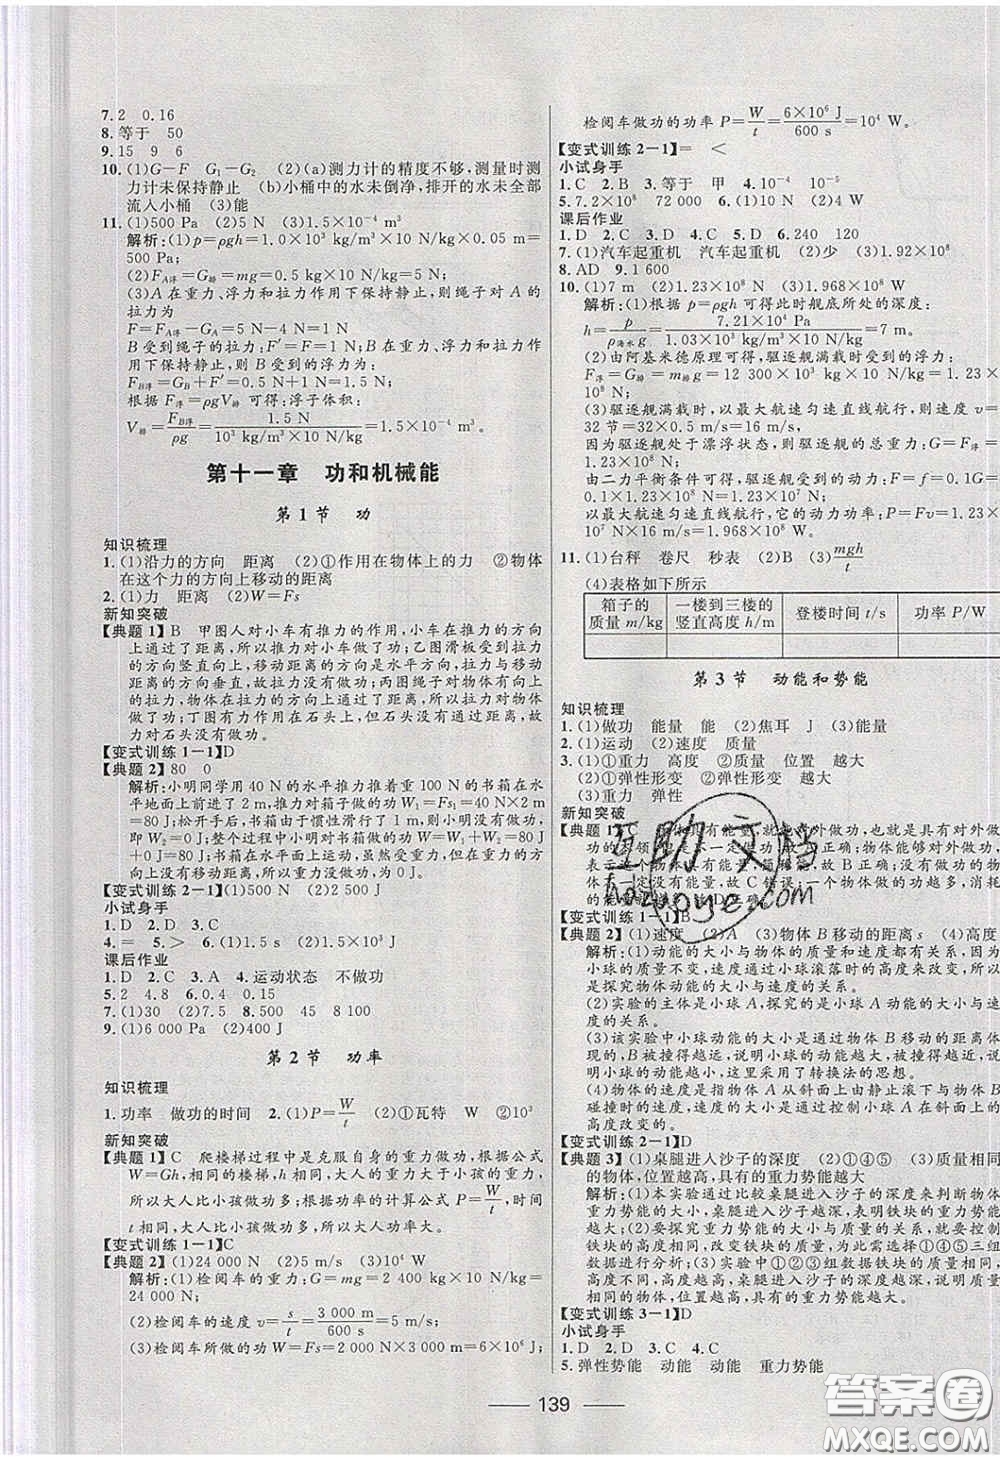 7.2　0.16
8.等于　50
9.15　9　6
10.(1)G－F　G₁－G₂　(2)(a)测力计的精度不够,测量时测
力计未保持静止　(b)小桶中的水未倒净,排开的水未全部
流入小桶　(3)能
11.(1)500 Pa　(2)5 N　(3)1.5×10⁻⁴ m³
解析:(1)p＝ρgh＝1.0×10³ kg/m³×10 N/kg×0.05 m＝
500 Pa;
(2)F_A浮＝G_排＝mg＝0.5 kg×10 N/kg＝5 N;
(3)A在重力、浮力和拉力作用下保持静止,则绳子对A的
拉力为
F＝F_A浮－G_A＝5 N－4 N＝1 N;
B受到绳子的拉力:F′＝F＝1 N;B在重力、浮力和拉力作
用下保持静止,则B受到的浮力为
F_B浮＝G_B＋F′＝0.5 N＋1 N＝1.5 N;
根据F_浮＝ρgV_排可得:浮子体积:
V_排＝F_B浮/ρg＝1.5 N/(10³ kg/m³×10 N/kg)＝1.5×10⁻⁴ m³。
第十一章　功和机械能
第1节　功
知识梳理
1.(1)沿力的方向　距离　(2)①作用在物体上的力　②物体
在这个力的方向上移动的距离
2.(1)力　距离　(2)W＝Fs
新知突破
【典题1】B　甲图人对小车有推力的作用,小车在推力的方向
上通过了距离,所以推力对小车做了功;乙图滑板受到拉力
的方向竖直向上,移动距离的方向是水平方向,拉力与移动
距离的方向垂直,故拉力没有做功;丙图绳子对物体有向上
的拉力,物体在拉力的方向上通过了距离,所以拉力对物体
做了功;丁图有力作用在石头上,但石头没有移动距离,故力
对石头没有做功。
【变式训练1－1】D
【典题2】80　0
解析:小明同学用40 N的水平推力推着重100 N的书箱在水
平地面上前进了2 m,推力对箱子做的功W₁＝Fs₁＝40 N×2 m＝
80 J;松开手后,书箱又向前滑行了1 m,没有推力,不做功,
即W₂＝0 J;整个过程中小明对书箱做的功W＝W₁＋W₂＝80 J
＋0 J＝80 J。书箱的重力没有做功,为0 J。
【变式训练2－1】(1)500 N　(2)2 500 J
小试身手
1.D　2.D　3.C
4.＝　5.＞　6.(1)1.5 s　(2)1.5×10³ J
课后作业
1.D　2.C　3.A　4.运动状态　不做功
5.2　4.8　6.0.4　0.15
7.(1)30　(2)7.5　8.500　45　8 100
9.(1)6 000 Pa　(2)400 J
第2节　功率
知识梳理
1.功率　做功的时间　2.(1)P＝W/t　(2)①瓦特　W　②10³
新知突破
【典题1】C　爬楼梯过程中是克服自身的重力做功,根据公式
W＝Gh,相同的楼梯,h相同,大人的重力大于小孩的重力,
所以大人比小孩做功多;根据功率的计算公式P＝W/t,时间
t相同,大人比小孩做功多,所以大人功率大。
【变式训练1－1】C
【典题2】(1)24 000 N　(2)5 m/s　(3)10⁴ W
解析:(1)检阅车的重力:G＝mg＝2 400 kg×10 N/kg＝
24 000 N;
(2)检阅车的速度v＝s/t＝3 000 m/600 s＝5 m/s;
(3)检阅车所做的功W＝Fs＝2 000 N×3 000 m＝6×10⁶ J,
检阅车做功的功率P＝W/t＝6×10⁶ J/600 s＝10⁴ W。
【变式训练2－1】＝　＜
小试身手
1.C　2.B　3.等于　甲　4.10⁻⁴　10⁻⁵
5.7.2×10⁸　72 000　6.(1)10 N　(2)4 W
课后作业
1.D　2.C　3.D　4.C　5.D　6.240　120
7.(1)汽车起重机　汽车起重机　(2)少　(3)1.92×10⁸
8.AD　9.1 600
10.(1)7 m　(2)1.23×10⁸ N　(3)1.968×10⁸ W
解析:(1)根据p＝ρgh可得此时舰底所处的深度:
h＝p/ρ_海水g＝7.21×10⁴ Pa/(1.03×10³ kg/m³×10 N/kg)＝7 m。
(2)由阿基米德原理可得,驱逐舰满载时受到的浮力:
F_浮＝G_排＝m_排g＝12 300×10³ kg×10 N/kg＝1.23×
10⁸ N;
(3)驱逐舰满载时,以最大航速匀速直线航行,则速度v＝
32节＝32×0.5 m/s＝16 m/s,
因为驱逐舰处于漂浮状态,则驱逐舰的总重力:G＝F_浮＝
1.23×10⁸ N,
由二力平衡条件可得,驱逐舰受到的动力:F＝f＝0.1G＝
0.1×1.23×10⁸ N＝1.23×10⁷ N;
以最大航速匀速直线航行,它的动力功率:P＝Fv＝1.23×10⁷
N×16 m/s＝1.968×10⁸ W。
11.(1)台秤　卷尺　秒表　(2)B　(3)mgh/t
(4)表格如下所示
箱子的质量m/kg　一楼到三楼的竖直高度h/m　登楼时间t/s　功率P/W
第3节　动能和势能
知识梳理
1.(1)做功　能量　能　(2)焦耳　J　(3)能量
2.(1)运动　(2)速度　质量
3.(1)①重力　高度　②质量　位置　越大
(2)①弹性形变　②弹性形变　越大
(3)重力　弹性
新知突破
具有能量,就能对外做功,也就是具有对外做功
不一定做功,故A正确;物体对外做功,
故B正确;没有做功的物
体一定没有能量,故C错误;一个物体能做的功越多,
【变式训练1－1】B
【典题2】(1)速度　(2)A　(3)物体B移动的距离s　(4)高度
解析:(1)动能的大小与物体的质量和速度都有关系,因
小球的质量不变,速度大小随小球滚落时的高度来改变,所以
是探究物体动能的大小与速度的关系。
(2)实验的主体是小球A,探究的是小球A动能的大小与速
度的关系。
(3)该实验中小球动能的大小是通过物体B移动的距离体
现的,B被撞得越远,说明小球的动能越大,B被撞得越近,说
明小球的动能越小,这里采用了转换法的思想。
(4)物体的速度是指物体A从斜面上由静止滚下与物体B
碰撞时的速度大小,速度大小是通过控制小球A在斜面上的
高度改变的。
【变式训练2－1】D
【典题3】(1)桌腿进入沙子的深度　(2)①④⑤　(3)质量相同
的物体,位置越高,具有的重力势能越大
解析:(1)本实验通过比较桌腿进入沙子的深度来判断物体
重力势能的大小,桌腿进入沙子越深,表明铁块的重力势能
越大;(2)要探究重力势能的大小与质量的关系,就要控制
铁块的高度相同,改变铁块的质量,为此需选择①④⑤三组
数据进行分析;(3)实验中①②③组数据铁块质量相同,铁
块位置越高,桌腿进入沙子的深度越深,说明质量相同的物体,
位置越高,具有的重力势能越大。
【变式训练3－1】D
小试身手
1.D　2.D　3.C　4.C
5.弹性势能　动能　动能　重力势能
139
互助文档
hozuoye.com
答案圈
MXQE.COM